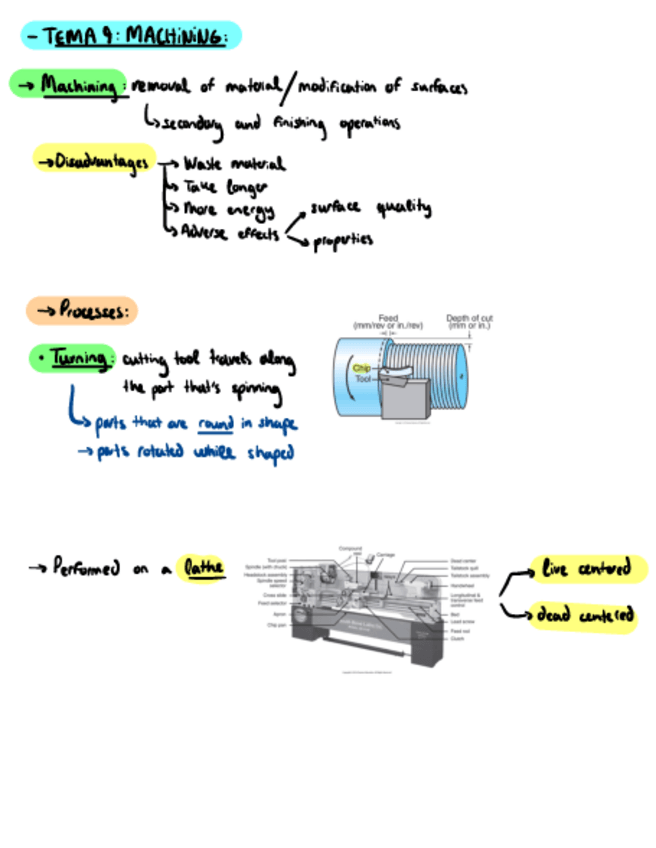 - TEMA 9: MACHINING:
→ Machining: removal of material / modification of surfaces
↳ secondary and finishing operations
→ Disadvantages → Waste material
↳ Take longer
↳ More energy
↳ Adverse effects → surface quality
→ properties
→ Processes:
• Turning: cutting tool travels along
the part that's spinning
↳ parts that are round in shape
→ parts rotated while shaped
Feed
(mm/rev or in./rev)
Depth of cut
(mm or in.)
Chip
Tool
→ Performed on a lathe
Tool post
Spindle (with chuck)
Headstock assembly
Spindle speed
selector
Cross slide
Feed selector
Apron
Chip pan
Compound
rest
Carriage
Ways
Dead center
Tailstock quill
Tailstock assembly
Handwheel
Longitudinal &
transverse feed
control
Bed
Lead screw
Feed rod
Clutch
→ live centered
→ dead centered